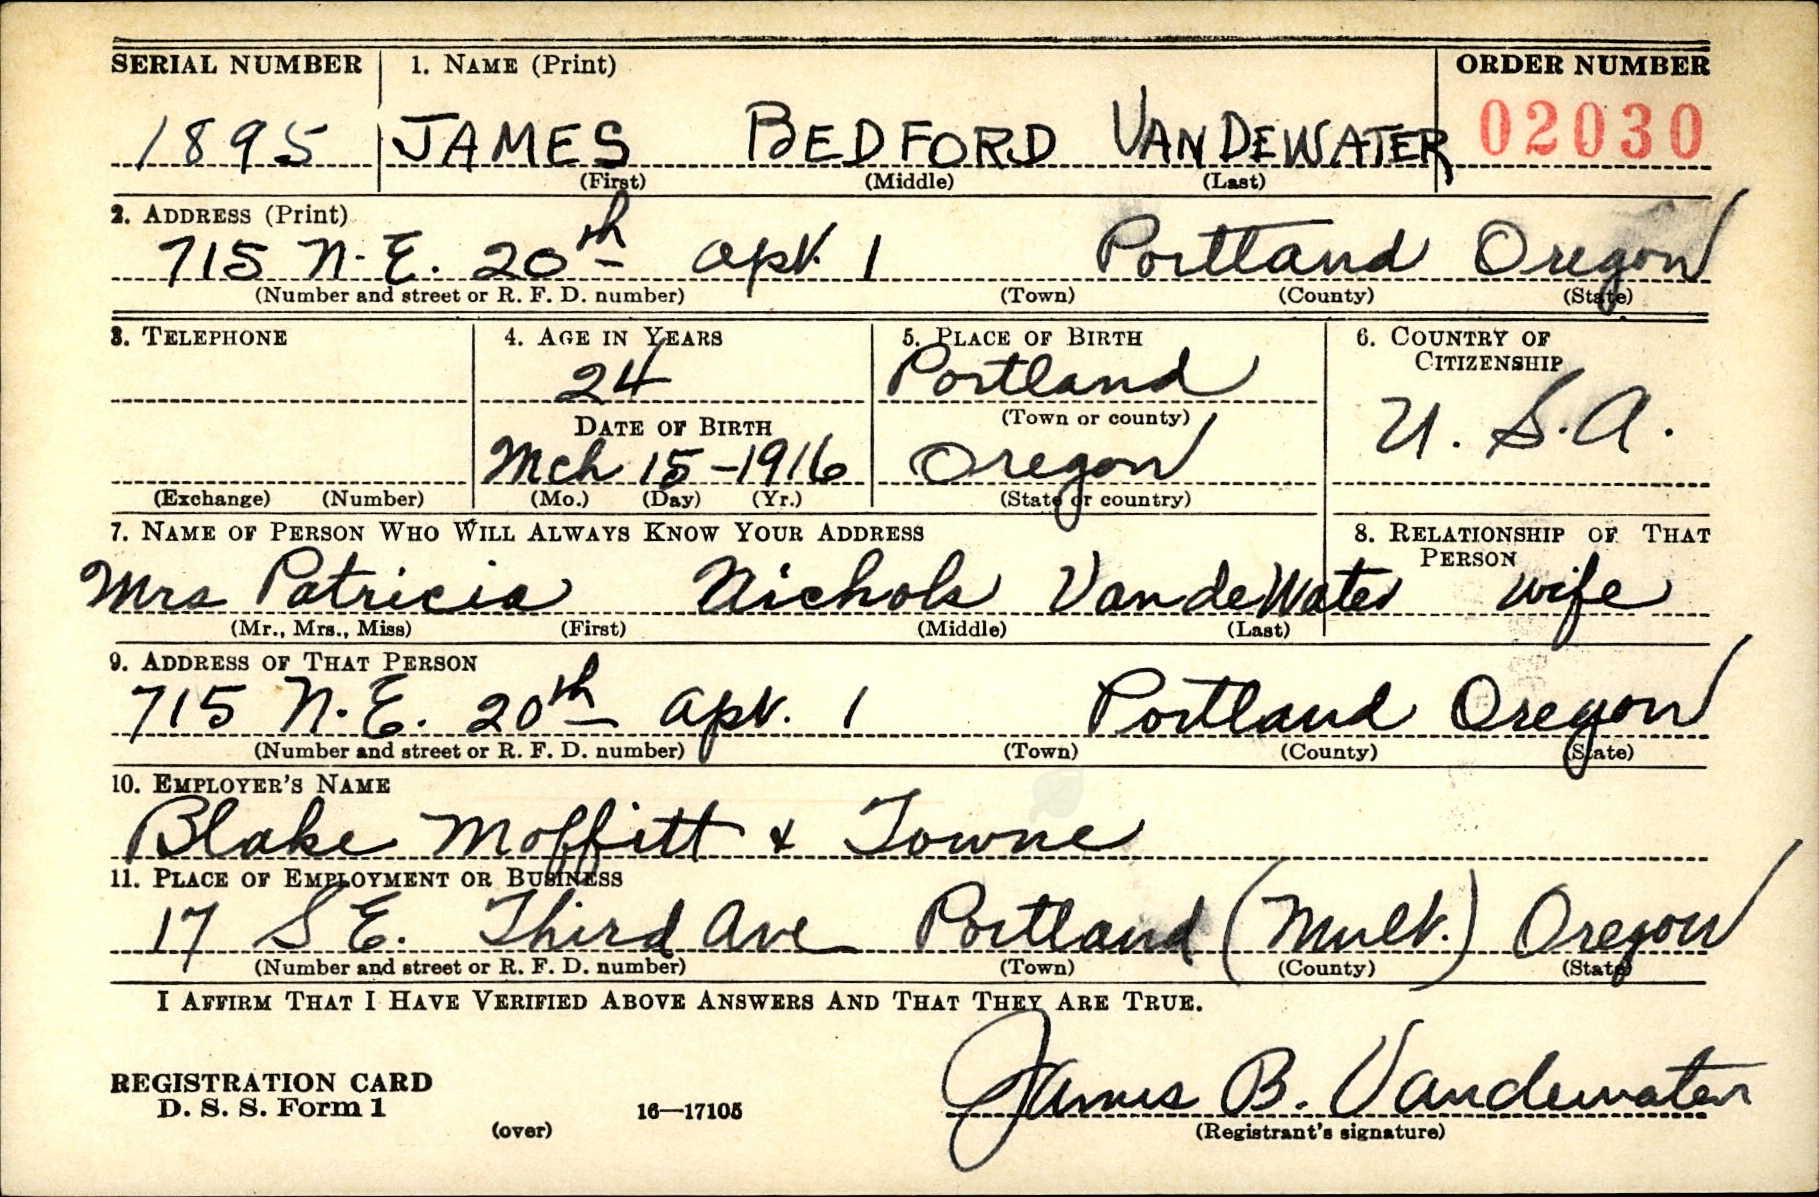 SERIAL NUMBER 1. NAME (Print) ORDER NUMBER
1895 JAMES BEDFORD VANDEWATER 02030
(First) (Middle) (Last)
2. ADDRESS (Print)
715 N.E. 20th apt. 1 Portland Oregon
(Number and street or R. F. D. number) (Town) (County) (State)
3. TELEPHONE 4. AGE IN YEARS 5. PLACE OF BIRTH 6. COUNTRY OF CITIZENSHIP
24 Portland
DATE OF BIRTH (Town or county) U.S.A.
Mch 15-1916 Oregon
(Exchange) (Number) (Mo.) (Day) (Yr.) (State or country)
7. NAME OF PERSON WHO WILL ALWAYS KNOW YOUR ADDRESS 8. RELATIONSHIP OF THAT PERSON
Mrs Patricia Nichols VandeWater wife
(Mr., Mrs., Miss) (First) (Middle) (Last)
9. ADDRESS OF THAT PERSON
715 N.E. 20th apt. 1 Portland Oregon
(Number and street or R. F. D. number) (Town) (County) (State)
10. EMPLOYER'S NAME
Blake Moffitt & Towne
11. PLACE OF EMPLOYMENT OR BUSINESS
17 S E. Third Ave Portland (Mult.) Oregon
(Number and street or R. F. D. number) (Town) (County) (State)
I AFFIRM THAT I HAVE VERIFIED ABOVE ANSWERS AND THAT THEY ARE TRUE.
James B. Vandewater
REGISTRATION CARD
D. S. S. Form 1 16—17105
(over) (Registrant's signature)